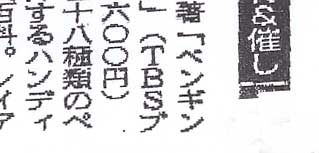 &催し
著『ペンギン
』（TBSブ
六〇〇円）
十八種類のペ
するハンディ
百科。